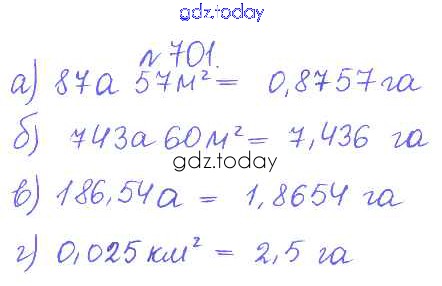 gdz.today
№ 701.
а) 87а 57м² = 0,8757 га
б) 743а 60м² = 7,436 га
gdz.today
в) 186,54а = 1,8654 га
г) 0,025 км² = 2,5 га